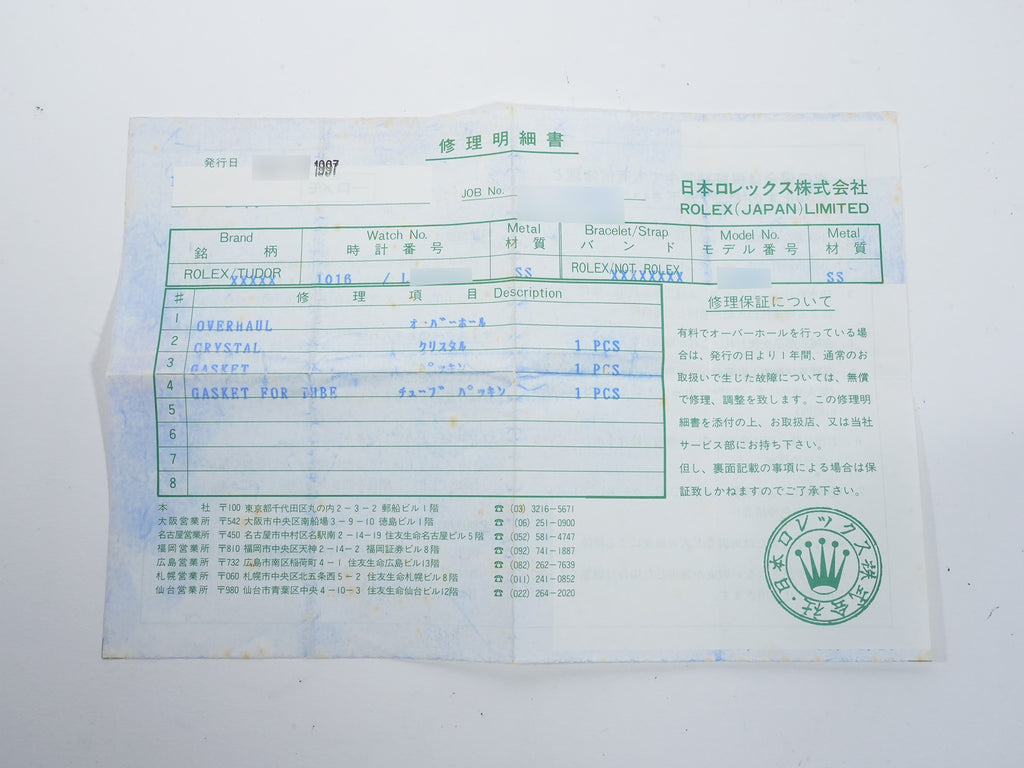 修理明細書
発行日 1997
JOB No.
日本ロレックス株式会社
ROLEX(JAPAN)LIMITED
Brand 銘柄 Watch No. 時計番号 Metal 材質 Bracelet/Strap バンド Model No. モデル番号 Metal 材質
ROLEX/TUDOR XXXXX 1016 / L SS ROLEX/NOT ROLEX XXXXXXXX SS
# 修理項目 Description
1 OVERHAUL オ-バーホール
2 CRYSTAL クリスタル 1 PCS
3 GASKET パッキン 1 PCS
4 GASKET FOR TUBE チューブ パッキン 1 PCS
5
6
7
8
修理保証について
有料でオーバーホールを行っている場
合は、発行の日より1年間、通常のお
取扱いで生じた故障については、無償
で修理、調整を致します。この修理明
細書を添付の上、お取扱店、又は当社
サービス部にお持ち下さい。
但し、裏面記載の事項による場合は保
証致しかねますのでご了承下さい。
本社 〒100 東京都千代田区丸の内2-3-2 郵船ビル1階 ☎ (03) 3216-5671
大阪営業所 〒542 大阪市中央区南船場3-9-10 徳島ビル1階 ☎ (06) 251-0900
名古屋営業所 〒450 名古屋市中村区名駅南2-14-19 住友生命名古屋ビル5階 ☎ (052) 581-4747
福岡営業所 〒810 福岡市中央区天神2-14-2 福岡証券ビル8階 ☎ (092) 741-1887
広島営業所 〒732 広島市南区稲荷町4-1 住友生命広島ビル13階 ☎ (082) 262-7639
札幌営業所 〒060 札幌市中央区北五条西5-2 住友生命札幌ビル8階 ☎ (011) 241-0852
仙台営業所 〒980 仙台市青葉区中央4-10-3 住友生命仙台ビル12階 ☎ (022) 264-2020
日本ロレックス株式会社